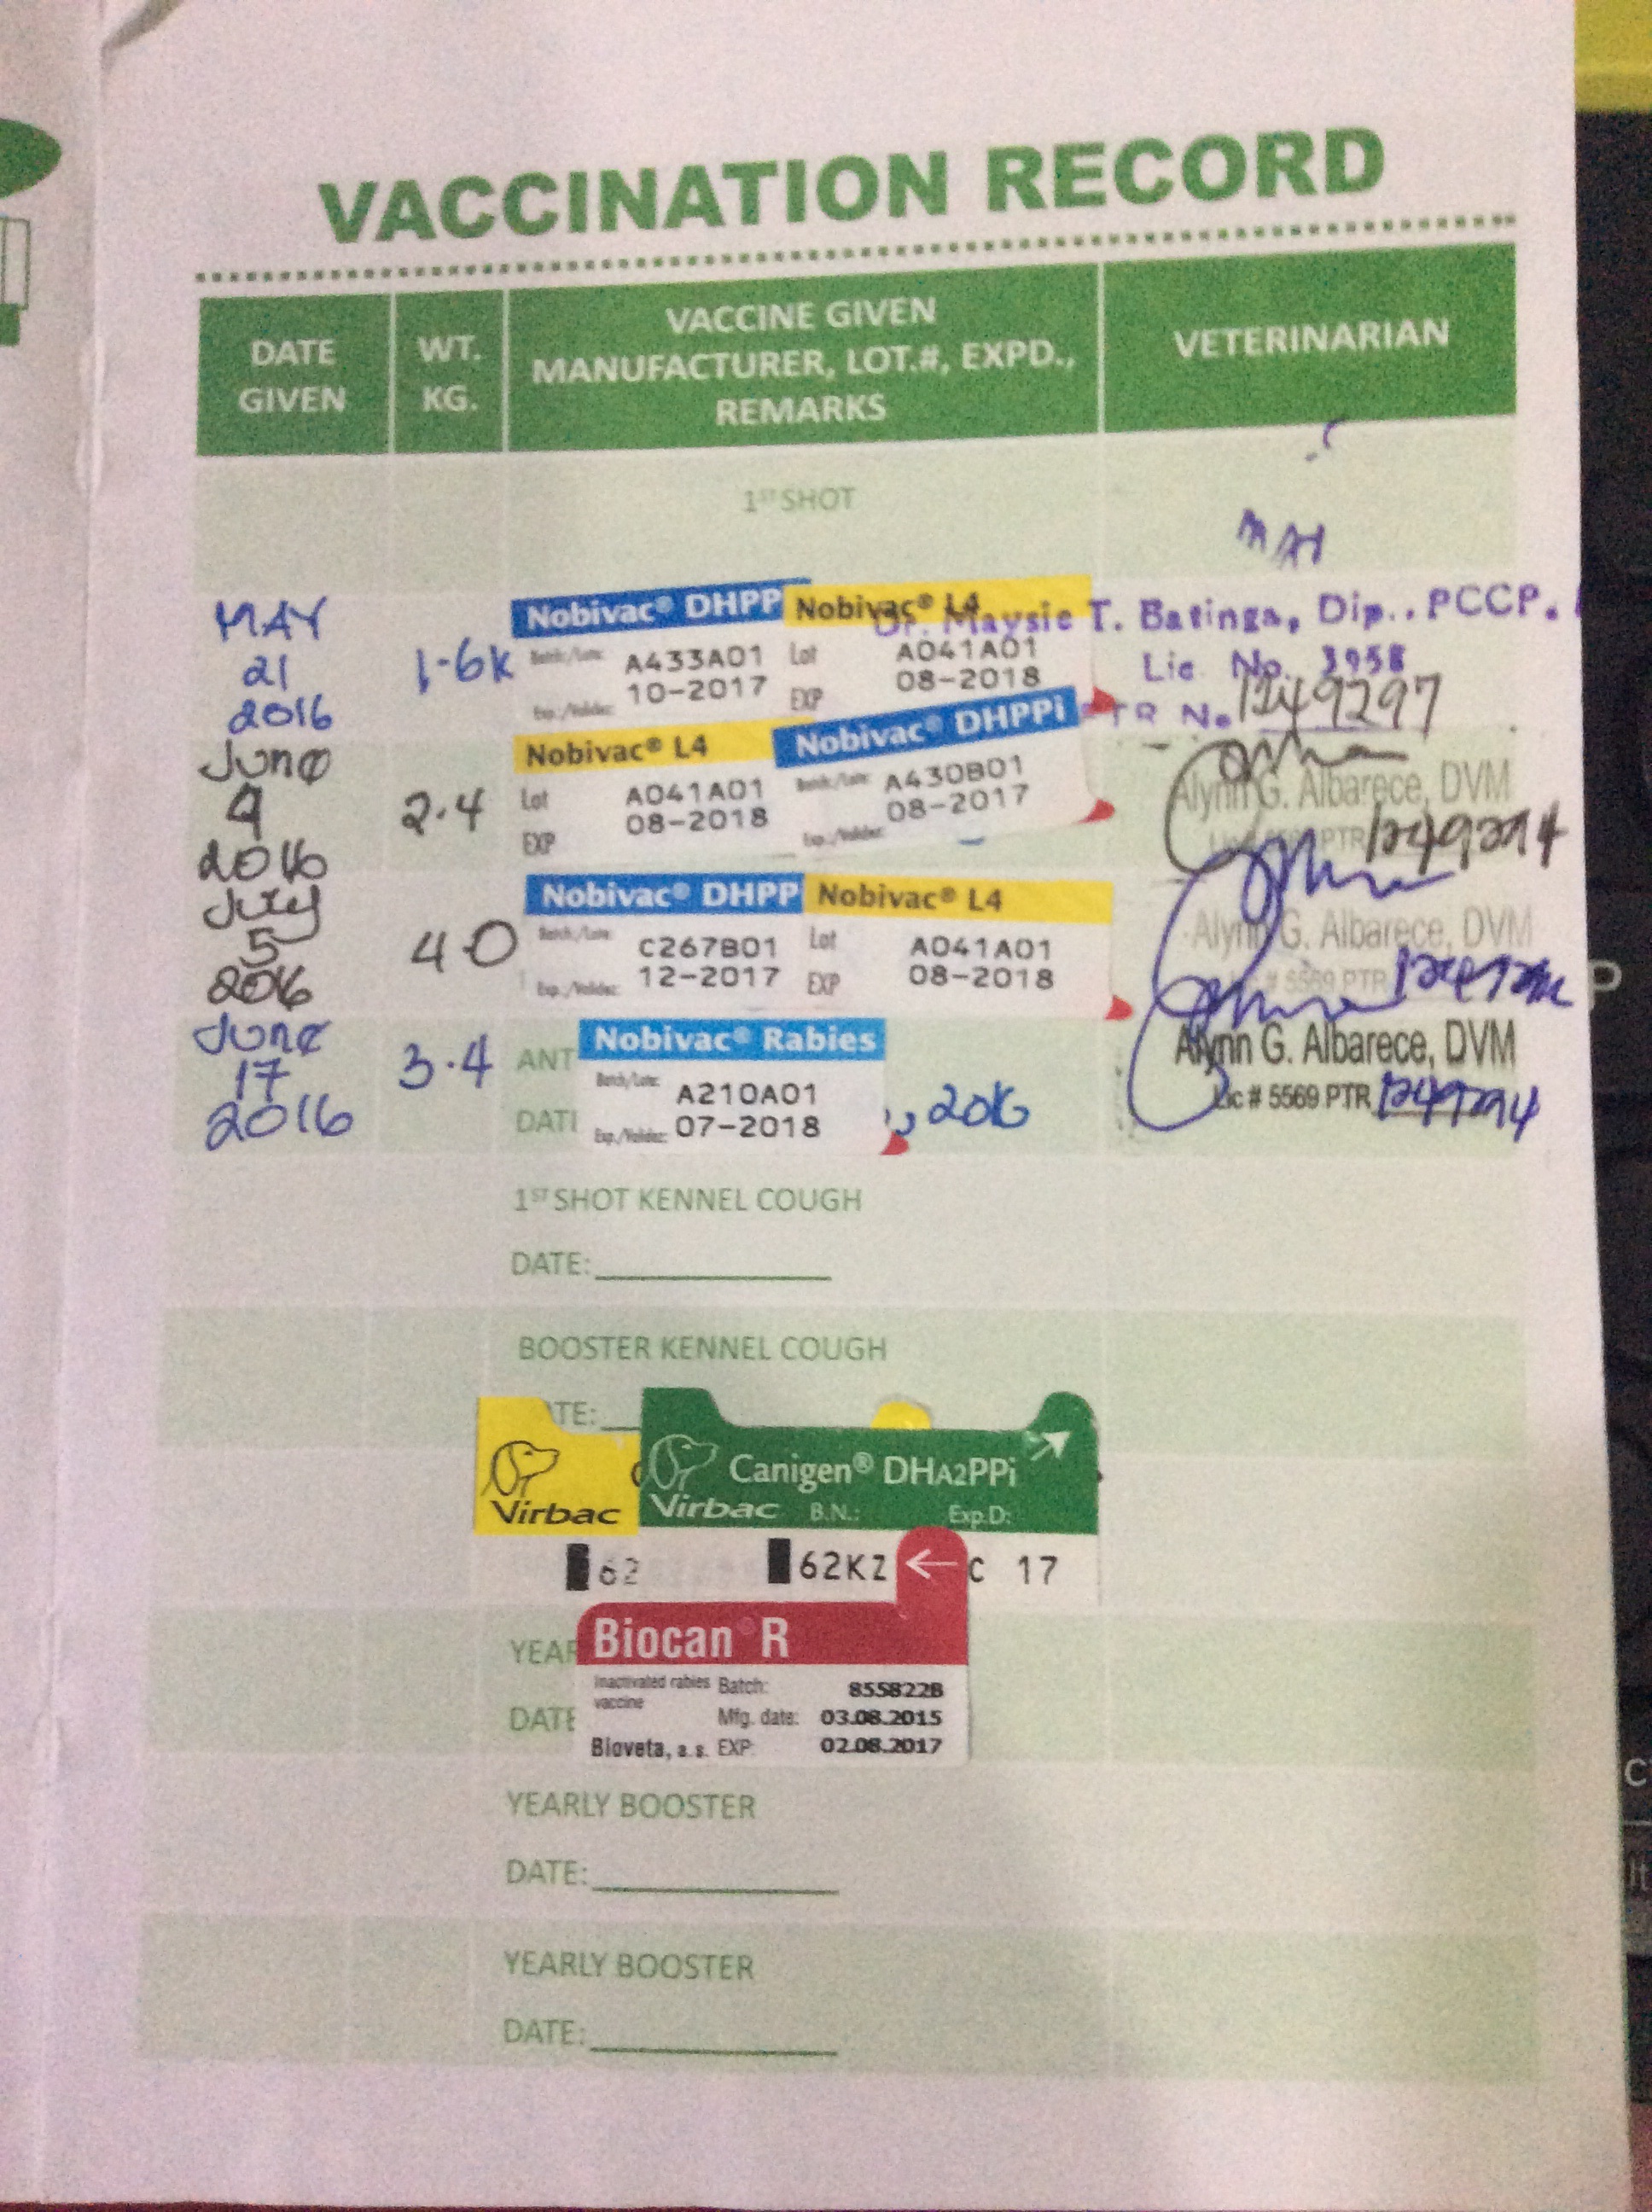 VACCINATION RECORD
DATE GIVEN
WT. KG.
VACCINE GIVEN
MANUFACTURER, LOT.#, EXPD.,
REMARKS
VETERINARIAN
1ST SHOT
MAY
21
2016
1.6k
Nobivac® DHPP
Batch/Lote:
A433A01
10-2017
Nobivac® L4
Lot
A041A01
EXP
08-2018
Dr. Maysie T. Batinga, Dip., PCCP.
Lic No. 3958
PTR No 1249297
June
4
2016
2.4
Nobivac® L4
Lot
A041A01
EXP
08-2018
Nobivac® DHPPi
A430B01
08-2017
Alynn G. Albarece, DVM
PTR 1249294
July
5
2016
4.0
Nobivac® DHPP
C267B01
12-2017
Nobivac® L4
Lot
A041A01
EXP
08-2018
Alynn G. Albarece, DVM
# 5569 PTR
June
17
2016
3.4
ANT
DATE
Nobivac® Rabies
Batch/Lote:
A210A01
07-2018
, 2016
Alynn G. Albarece, DVM
Lic # 5569 PTR 1249294
1ST SHOT KENNEL COUGH
DATE:
BOOSTER KENNEL COUGH
ATE:
Virbac
Canigen® DHA2PPi
Virbac B.N.: Exp.D:
62
62KZ
C 17
YEAR
DATE
Biocan® R
Inactivated rabies vaccine
Batch: 855822B
Mfg. date: 03.08.2015
Bioveta, a.s. EXP: 02.08.2017
YEARLY BOOSTER
DATE:
YEARLY BOOSTER
DATE: